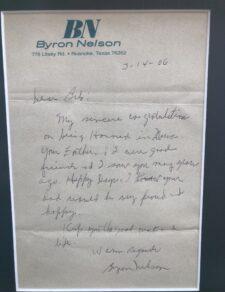 BN
Byron Nelson
Roanoke, Texas 76262
3-14-06
My sincere congratulations
on being Honored in
your Father & I were good
friends and I saw you many years
ago. Happy Days.
Dad would be very proud &
happy.
Keep up the good work &
life
Warm regards
Byron Nelson